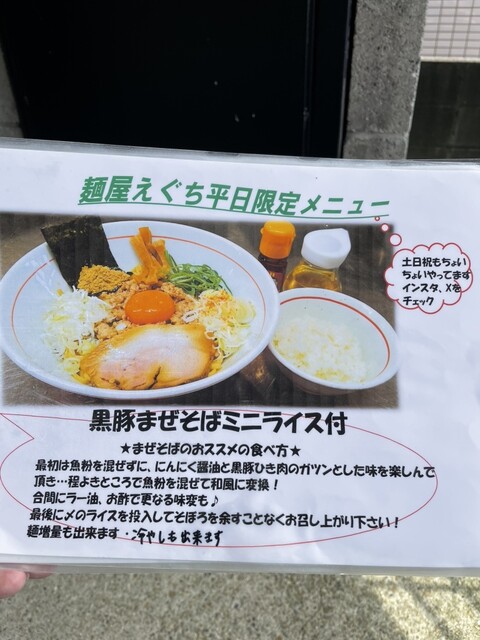 麺屋えぐち平日限定メニュー
土日祝もちょい
ちょいやってます
インスタ、Xを
チェック
黒豚まぜそばミニライス付
★まぜそばのおススメの食べ方★
最初は魚粉を混ぜずに、にんにく醤油と黒豚ひき肉のガツンとした味を楽しんで
頂き…程よきところで魚粉を混ぜて和風に変換！
合間にラー油、お酢で更なる味変も♪
最後に〆のライスを投入してそぼろを余すことなくお召し上がり下さい！
麺増量も出来ます・冷やしも出来ます